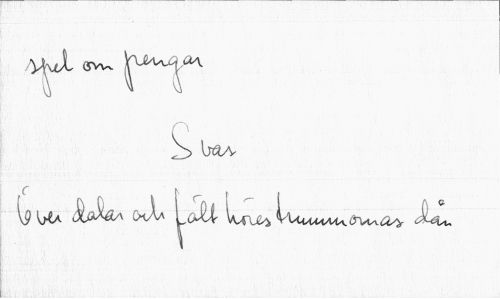 spel om pengar
Svar
Över dalar och fält höres trummornas dån